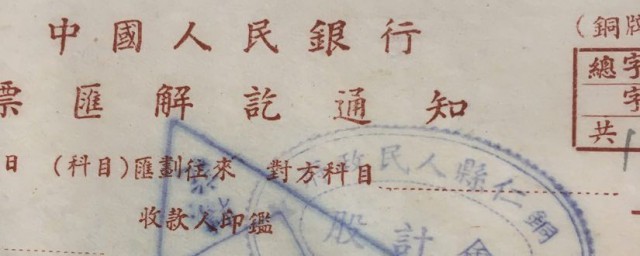 中國人民銀行
(銅牌
票匯解訖通知
總字
字
共
日 (科目)匯劃往來 對方科目
收款人印鑑
銅仁縣人民政
會計股